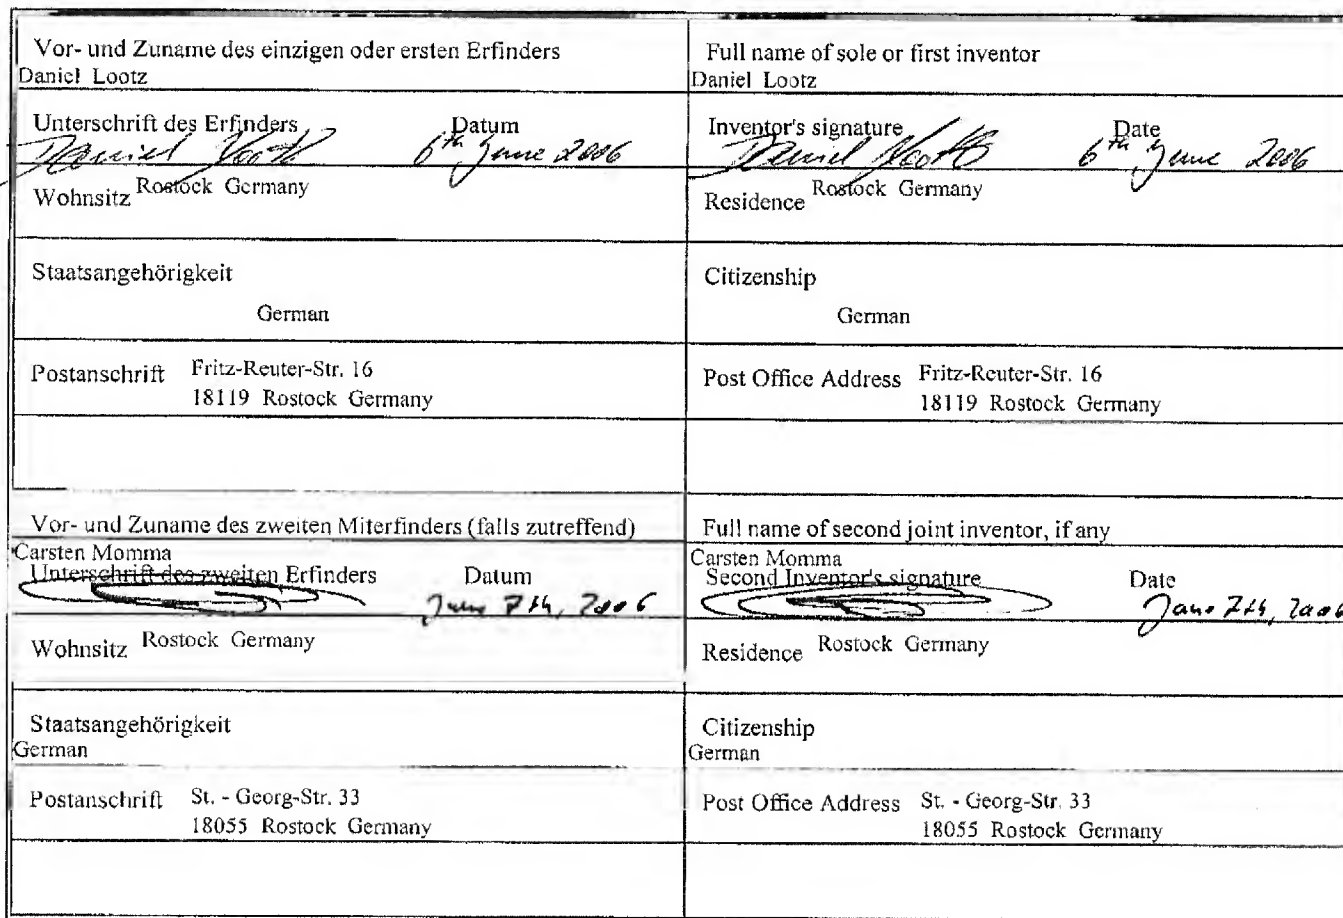 Vor- und Zuname des einzigen oder ersten Erfinders
Daniel Lootz
Unterschrift des Erfinders Datum
Daniel Lootz 6th June 2006
Wohnsitz Rostock Germany
Staatsangehörigkeit
German
Postanschrift Fritz-Reuter-Str. 16
18119 Rostock Germany
Vor- und Zuname des zweiten Miterfinders (falls zutreffend)
Carsten Momma
Unterschrift des zweiten Erfinders Datum
June 7th, 2006
Wohnsitz Rostock Germany
Staatsangehörigkeit
German
Postanschrift St. - Georg-Str. 33
18055 Rostock Germany
Full name of sole or first inventor
Daniel Lootz
Inventor's signature Date
Daniel Lootz 6th June 2006
Residence Rostock Germany
Citizenship
German
Post Office Address Fritz-Reuter-Str. 16
18119 Rostock Germany
Full name of second joint inventor, if any
Carsten Momma
Second Inventor's signature Date
June 7th, 2006
Residence Rostock Germany
Citizenship
German
Post Office Address St. - Georg-Str. 33
18055 Rostock Germany